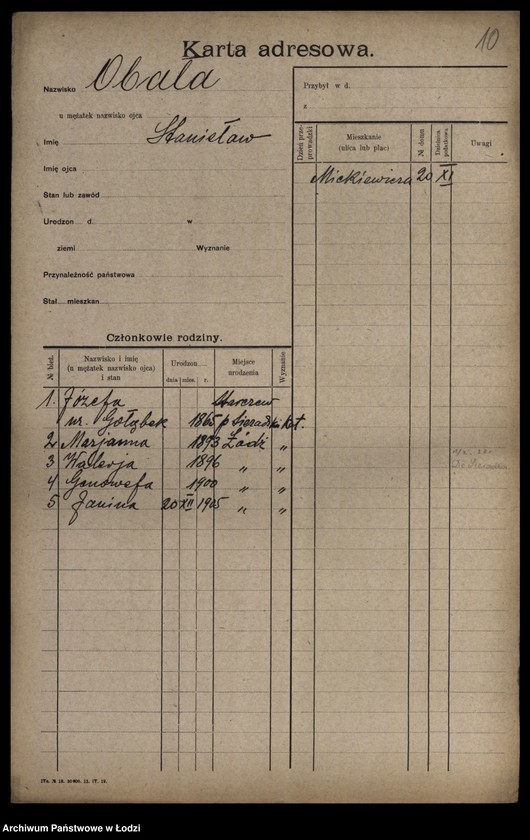 10
Karta adresowa.
Nazwisko Obala
u mężatek nazwisko ojca
Imię Stanisław
Imię ojca
Stan lub zawód
Urodzon d. w
ziemi Wyznanie
Przynależność państwowa
Stał. mieszkan.
Przybył w d.
z
Dzień przeprowadzki
Mieszkanie (ulica lub plac)
№ domu
Dzielnica podatkowa.
Uwagi
Mickiewicza 20 XI
Członkowie rodziny.
№ bież.
Nazwisko i imię (u mężatek nazwisko ojca) i stan
Urodzon
dnia mies. r.
Miejsce urodzenia
Wyznanie
1. Józefa
ur. Gołąbek 1865 p Sieradzki kat.
2 Marjanna 1893 Łódź „
3 Walerja 1896 „ „
4 Genowefa 1900 „ „
5 Janina 20 XII 1905 „ „